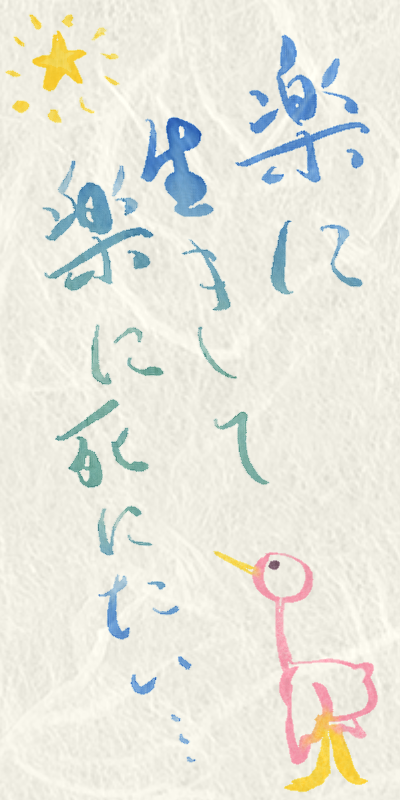 楽に
生きして
楽に死にたい…